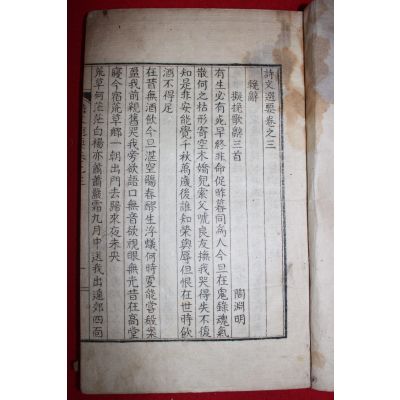 詩文選要卷之三
輓辭
擬挽歌辭三首
陶淵明
有生必有死早終非命促昨暮同為人今旦在鬼錄魂氣
散何之枯形寄空木嬌兒索父啼良友撫我哭得失不復
知是非安能覺千秋萬歲後誰知榮與辱但恨在世時飲
酒不得足
在昔無酒飲今旦湛空觴春醪生浮蟻何時更能嘗肴案
盈我前親舊哭我旁欲語口無音欲視眼無光昔在高堂
寢今宿荒草鄉一朝出門去歸來夜未央
荒草何茫茫白楊亦蕭蕭嚴霜九月中送我出遠郊四面